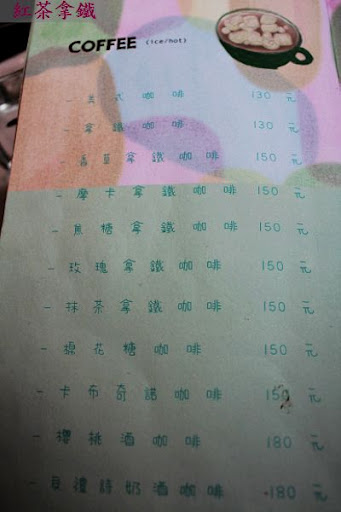 紅茶拿鐵
COFFEE (ice/hot)
- 美式咖啡 130 元
- 拿鐵咖啡 130 元
- 香草拿鐵咖啡 150 元
- 摩卡拿鐵咖啡 150 元
- 焦糖拿鐵咖啡 150 元
- 玫瑰拿鐵咖啡 150 元
- 抹茶拿鐵咖啡 150 元
- 棉花糖咖啡 150 元
- 卡布奇諾咖啡 150 元
- 櫻桃酒咖啡 180 元
- 貝禮詩奶酒咖啡 -180 元